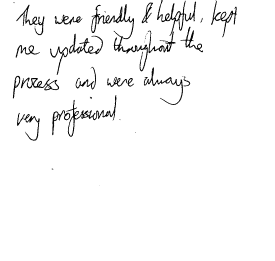 They were friendly & helpful, kept
me updated throughout the
process and were always
very professional.